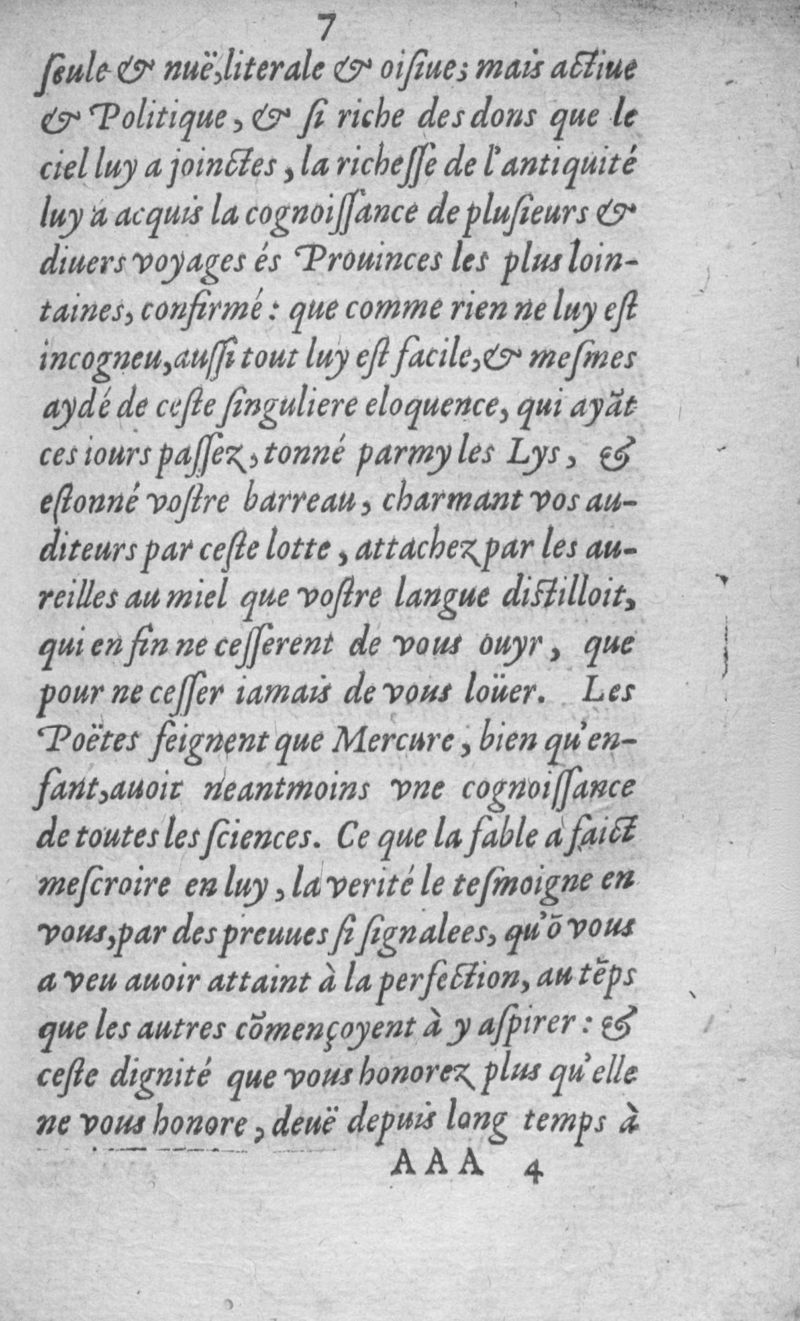 7
ſeule & nuë, literale & oiſiue; mais actiue
& Politique, & ſi riche des dons que le
ciel luy a joinctes, la richeſſe de l'antiquité
luy a acquis la cognoiſſance de pluſieurs &
diuers voyages és Prouinces les plus loin-
taines, confirmé : que comme rien ne luy eſt
incogneu, auſſi tout luy eſt facile, & meſmes
aydé de ceſte ſinguliere eloquence, qui ayãt
ces iours paſſez, tonné parmy les Lys, &
eſtonné voſtre barreau, charmant vos au-
diteurs par ceſte lotte, attachez par les au-
reilles au miel que voſtre langue diſtilloit,
qui en fin ne ceſſerent de vous ouyr, que
pour ne ceſſer iamais de vous loüer. Les
Poëtes feignent que Mercure, bien qu'en-
fant, auoit neantmoins vne cognoiſſance
de toutes les ſciences. Ce que la fable a faict
meſcroire en luy, la verité le teſmoigne en
vous, par des preuues ſi ſignalees, qu'õ vous
a veu auoir attaint à la perfection, au tẽps
que les autres cõmençoyent à y aſpirer : &
ceſte dignité que vous honorez plus qu'elle
ne vous honore, deuë depuis long temps à
AAA 4